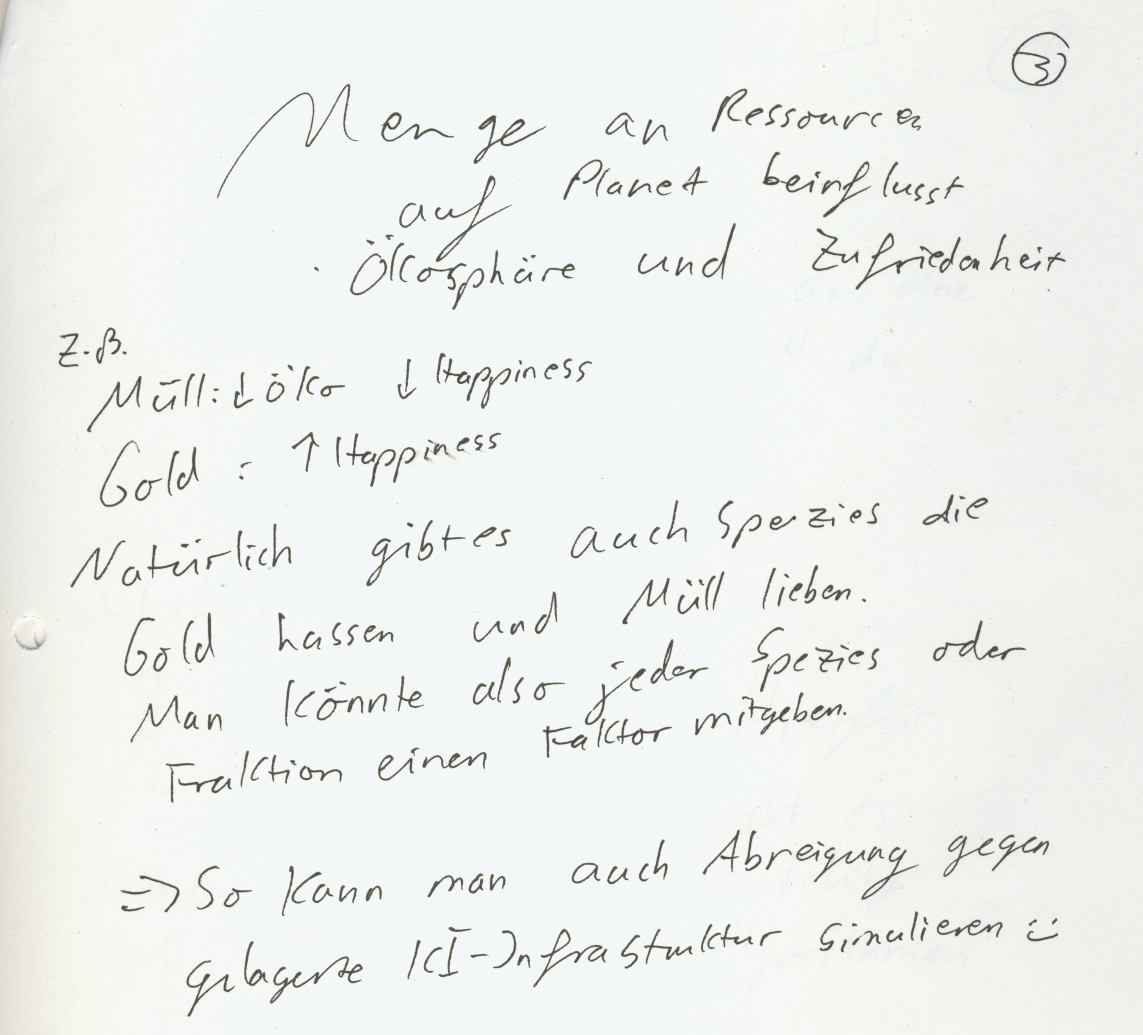 3
Menge an Ressourcen
auf Planet beinflusst
Ökosphäre und Zufriedenheit
z.B.
Müll: ↓ öko ↓ Happiness
Gold : ↑ Happiness
Natürlich gibt es auch Sperzies die
Gold hassen und Müll lieben.
Man könnte also jeder Spezies oder
Fraktion einen Faktor mitgeben.
=> So kann man auch Abneigung gegen
gelagerte KI-Infrastuktur simulieren :)